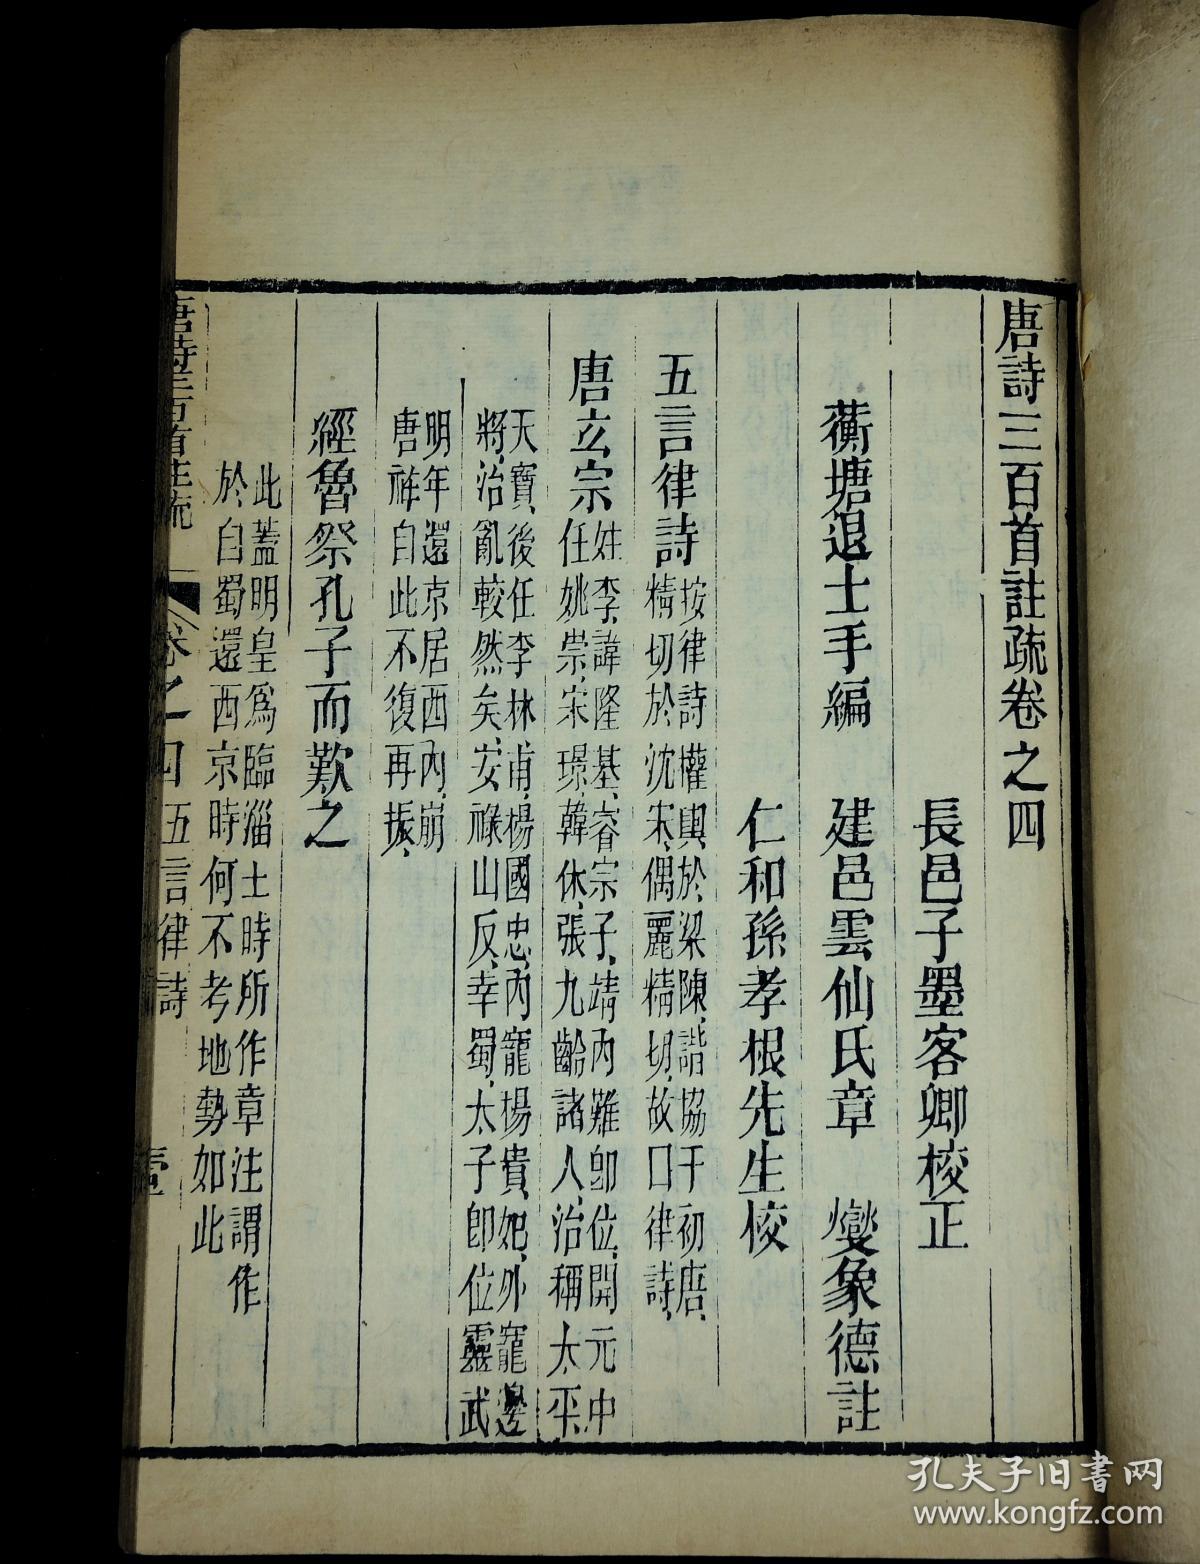 唐詩三百首註疏卷之四
長邑子墨客卿校正
蘅塘退士手編 建邑雲仙氏章 燮象德註
仁和孫孝根先生校
五言律詩
按律詩權輿於梁陳、諧協于初唐、
精切於沈宋、偶麗精切、故口律詩、
唐玄宗
姓李、諱隆基、睿宗子、靖內難卽位、開元中
任姚崇、宋璟、韓休、張九齡諸人、治稱太平、
天寶、後任李林甫、楊國忠、內寵楊貴妃、外寵邊
將、治亂較然矣、安祿山反、幸蜀、太子即位靈武
明年還京居西內、崩
唐祚自此不復再振、
經魯祭孔子而歎之
此蓋明皇爲臨淄士時所作章注謂作
於自蜀還西京時何不考地勢如此
唐詩三百首註疏
卷之四 五言律詩
壹
孔夫子旧书网
www.kongfz.com